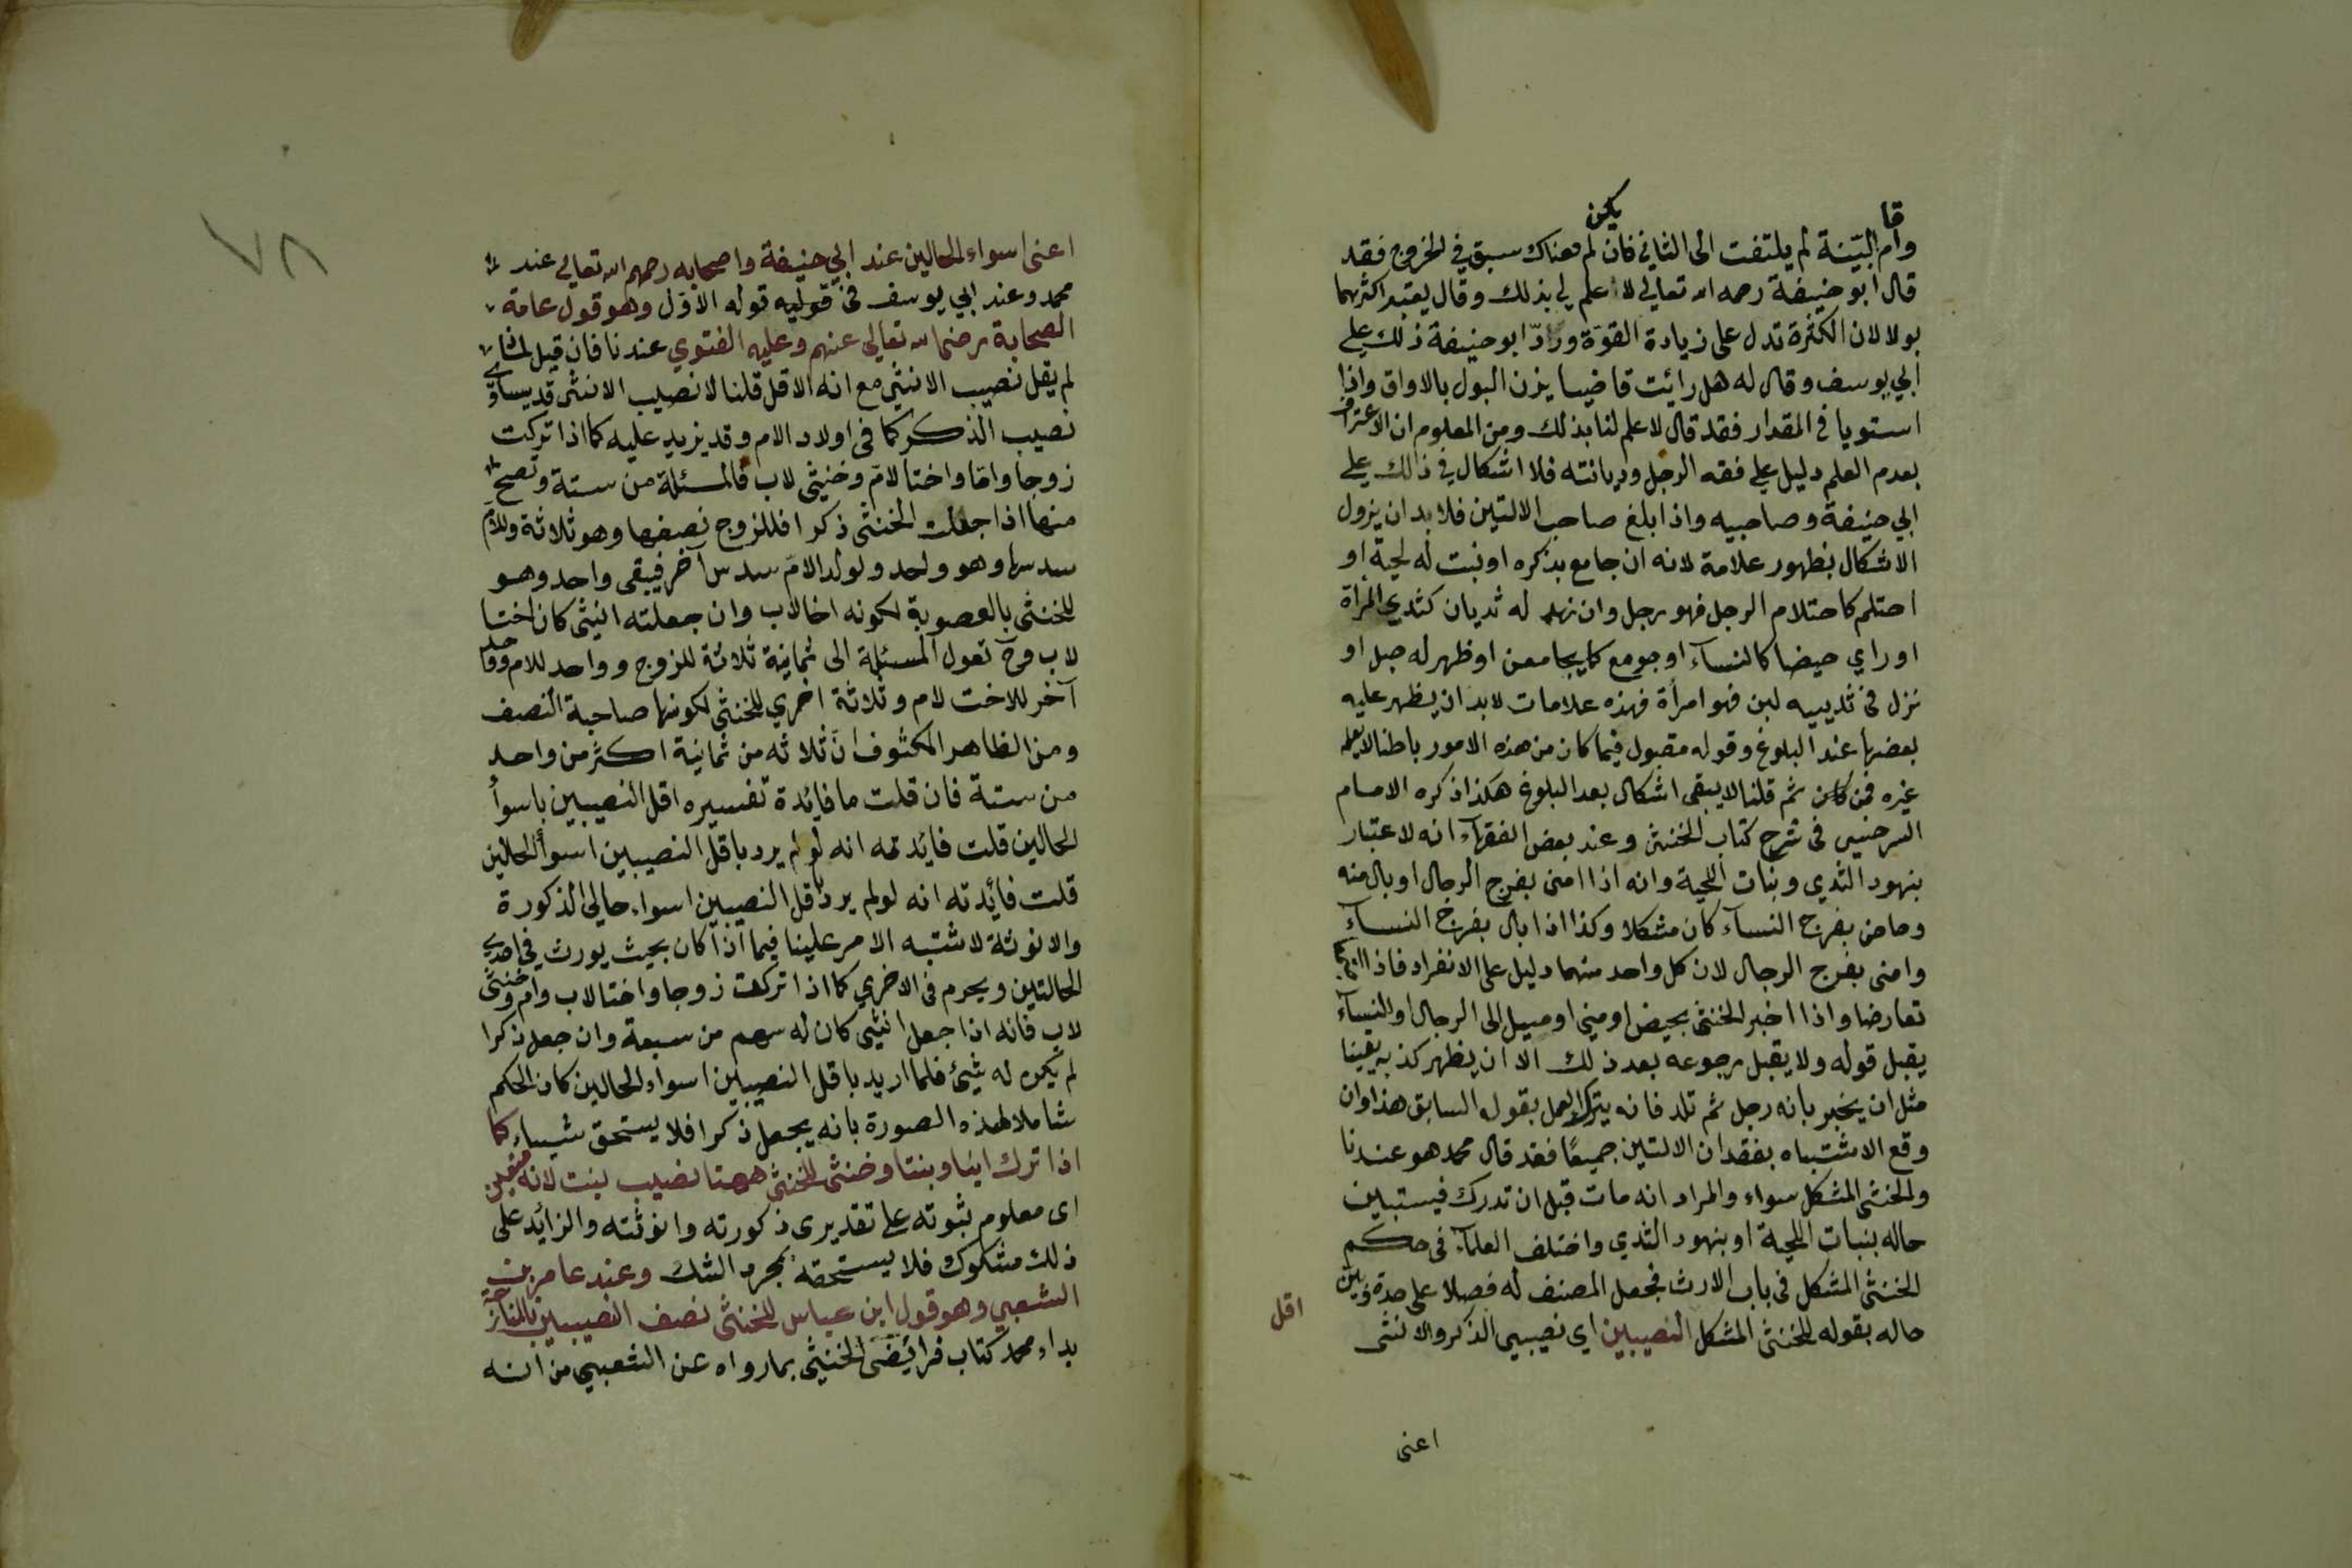 وأقام البيّنة لم يلتفت الى الثاني فان لم يكن هناك سبق في الخروج فقد
قال ابو حنيفة رحمه الله تعالى لا علم لي بذلك وقال يعتبر اكثرهما
بولا لان الكثرة تدل على زيادة القوّة وردّ ابو حنيفة ذلك على
ابي يوسف وقال له هل رائت قاضيا يزن البول بالاواق واذا
استويا في المقدار فقد قال لا علم لنا بذلك ومن المعلوم ان الاعتراف
بعدم العلم دليل على فقه الرجل وديانته فلا اشكال في ذالك على
ابي حنيفة وصاحبيه واذا بلغ صاحب الالتين فلا بد ان يزول
الاشكال بظهور علامة لانه ان جامع بذكره او نبت له لحية او
احتلم كاحتلام الرجل فهو رجل وان نهد له ثديان كثدي المرأة
او راي حيضا كالنسآء او جومع كما يجامعن او ظهر له حبل او
نزل في ثدييه لبن فهو امرأة فهذه علامات لا بد ان يظهر عليه
بعضها عند البلوغ وقوله مقبول فيما كان من هذه الامور باطنا لا يعلمه
غيره فمن ثم قلنا لا يبقى اشكال بعد البلوغ هكذا ذكره الامام
السرخسي في شرح كتاب الخنثى وعند بعض الفقهآء انه لا عتبار
بنهود الثدي ونبات اللحية وانه اذا امنى بفرج الرجال او بال منه
وحاض بفرج النسآء كان مشكلا وكذا اذا بال بفرج النسآء
وامنى بفرج الرجال لان كل واحد منهما دليل على الانفراد فاذا اجتمعا
تعارضا واذا اخبر الخنثى بحيض او مني او ميل الى الرجال او النسآء
يقبل قوله ولا يقبل رجوعه بعد ذلك الا ان يظهر كذبه يقينا
مثل ان يخبر بانه رجل ثم تلد فانه يترك العمل بقوله السابق هذا وان
وقع الاشتباه بفقدان الالتين جميعًا فقد قال محمد هو عندنا
والخنثى المشكل سواء والمراد انه مات قبل ان تدرك فيستبين
حاله بنبات اللحية او بنهود الثدي واختلف العلمآء في حكم
الخنثى المشكل في باب الارث فجعل المصنف له فصلا على حدة وبين
حاله بقوله للخنثى المشكل اقل النصيبين اي نصيبي الذكر والانثى
اعنى
٧٨
اعنى اسواء الحالين عند ابي حنيفة واصحابه رحمهم الله تعالى عند
محمد وعند ابي يوسف في قوليه قوله الاوّل وهو قول عامة
الصحابة رضي الله تعالى عنهم وعليه الفتوي عندنا فان قيل لماذا
لم يقل نصيب الانثى مع انه الاقل قلنا لا نصيب الانثى قد يساوي
نصيب الذكر كما في اولاد الام وقد يزيد عليه كما اذا تركت
زوجا وامّا واختا لامّ وخنثى لاب فالمسئلة من ستة وتصح
منها اذا جعلت الخنثى ذكرا فللزوج نصفها وهو ثلاثة وللام
سدسها وهو واحد ولولد الامّ سدس آخر فيبقى واحد وهو
للخنثى بالعصوبة لكونه اخا لاب وان جعلته انيثى كان اختا
لاب وح تعول المسئلة الى ثمانية ثلاثة للزوج وواحد للام وواحد
آخر للاخت لام وثلاثة اخري للخنثى لكونها صاحبة النصف
ومن الظاهر المكشوف انّ ثلاثه من ثمانية اكثر من واحد
من ستة فان قلت ما فايدة تفسيره اقل النصيبين باسوأ
الحالين قلت فايدته انه لو لم يرد باقل النصيبين اسوأ الحالين
قلت فائدته انه لو لم يرد باقل النصيبين اسواء حالي الذكورة
والانوثة لاشتبه الامر علينا فيما اذا كان بحيث يورث في احدي
الحالتين ويحرم في الاخري كما اذا تركت زوجا واختا لاب وام وخنثى
لاب فانه اذا جعل انثيى كان له سهم من سبعة وان جعل ذكرا
لم يكن له شيئ فلما اريد باقل النصيبين اسواء الحالين كان الحكم
شاملا لهذه الصورة بانه يجعل ذكرا فلا يستحق شيساء كما
اذا ترك ابنا وبنتا وخنثى للخنثى ههنا نصيب بنت لانه متيقن
اى معلوم ثبوته على تقديرى ذكورته وانوثته والزائد على
ذلك مشكوك فلا يستحقه بمجرد الشك وعند عامر بن
الشعبي وهو قول ابن عباس للخنثى نصف النصيبين بالمنازعة
بداء محمد كتاب فرائيضى الخنيثى بما رواه عن الشعبي من انه